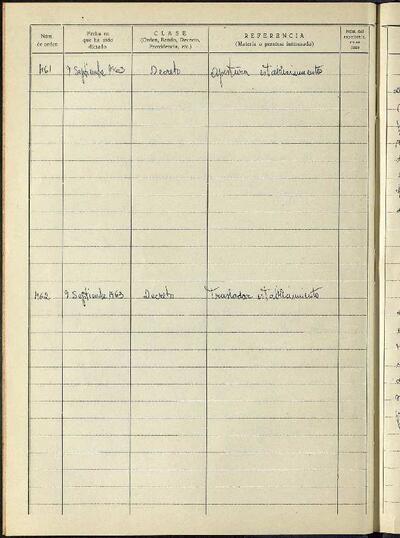 Núm. de orden
Fecha en que ha sido dictado
CLASE
(Orden, Bando, Decreto, Providencia, etc.)
REFERENCIA
(Materia o persona interesada)
Núm. del
461 9 Septiembre 1963 Decreto Apertura establecimiento
462 9 Septiembre 1963 Decreto Trasladar establecimiento